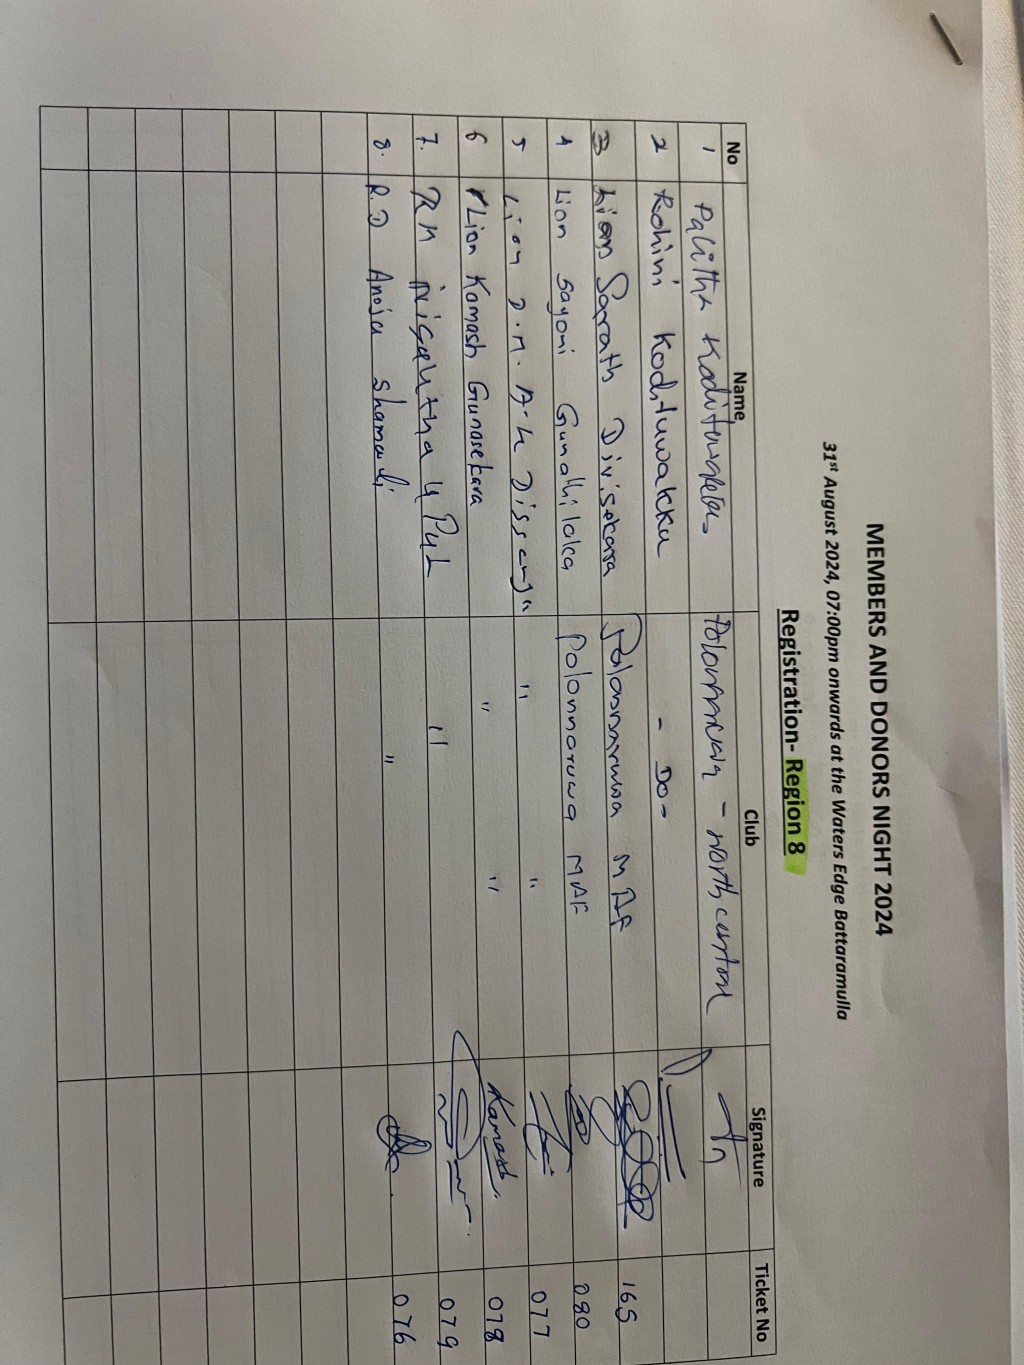 MEMBERS AND DONORS NIGHT 2024
31st August 2024, 07:00pm onwards at the Waters Edge Battaramulla
Registration- Region 8
No Name Club Signature Ticket No
1 Palitha Kodituwakku Polonnaruwa - north central
2 Rohini Kodituwakku - Do -
3 Lion Sarath Divisekara Polonnaruwa MAF 165
4 Lion Sayoni Gunathilaka Polonnaruwa MAF 080
5 Lion D.M. A.K " " 077
6 Lion Kamash Gunasekara " " Kamash. 078
7. RM " 079
8. R.D Anoja Shamali " 076